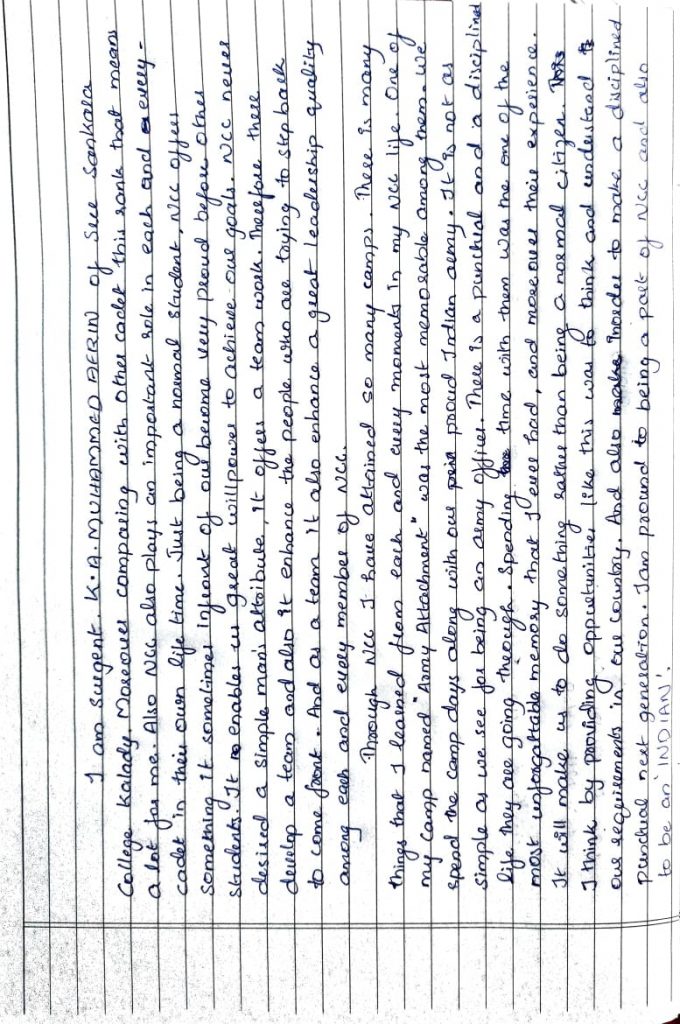 I am surgent. K.A. MUHAMMED AFRIN of Sree Sankara
College Kalady. Moreover comparing with other cadet this rank that means
a lot for me. Also NCC also plays an important role in each and every-
cadet in their own life time. Just being a normal student, NCC offers
something it sometimes infront of our become very proud before other
students. It enables us great willpower to achieve our goals. NCC never
desired a simple man's attribute, it offers a team work. Therefore there
develop a team and also it enhance the people who are trying to step back
to come front. And as a team it also enhance a great leadership quality
among each and every member of NCC.
Through NCC I have attained so many camps. There is many
things that I learned from each and every moments in my NCC life. One of
my camp named "Army Attachment" was the most memorable among them. We
spend the camp days along with our proud Indian army. It is not as
simple as we see for being an army officer. There is a punctual and a disciplined
life they are going through. Spending time with them was the one of the
most unforgattable memory that I ever had, and moreover their experience.
It will make us to do something rather than being a normal citizen. This
I think by providing oppurtunities like this was to think and understand to
our requirements in our country. And also inorder to make a disciplined
punctual next generation. I am pround to being a part of NCC and also
to be an 'INDIAN'.